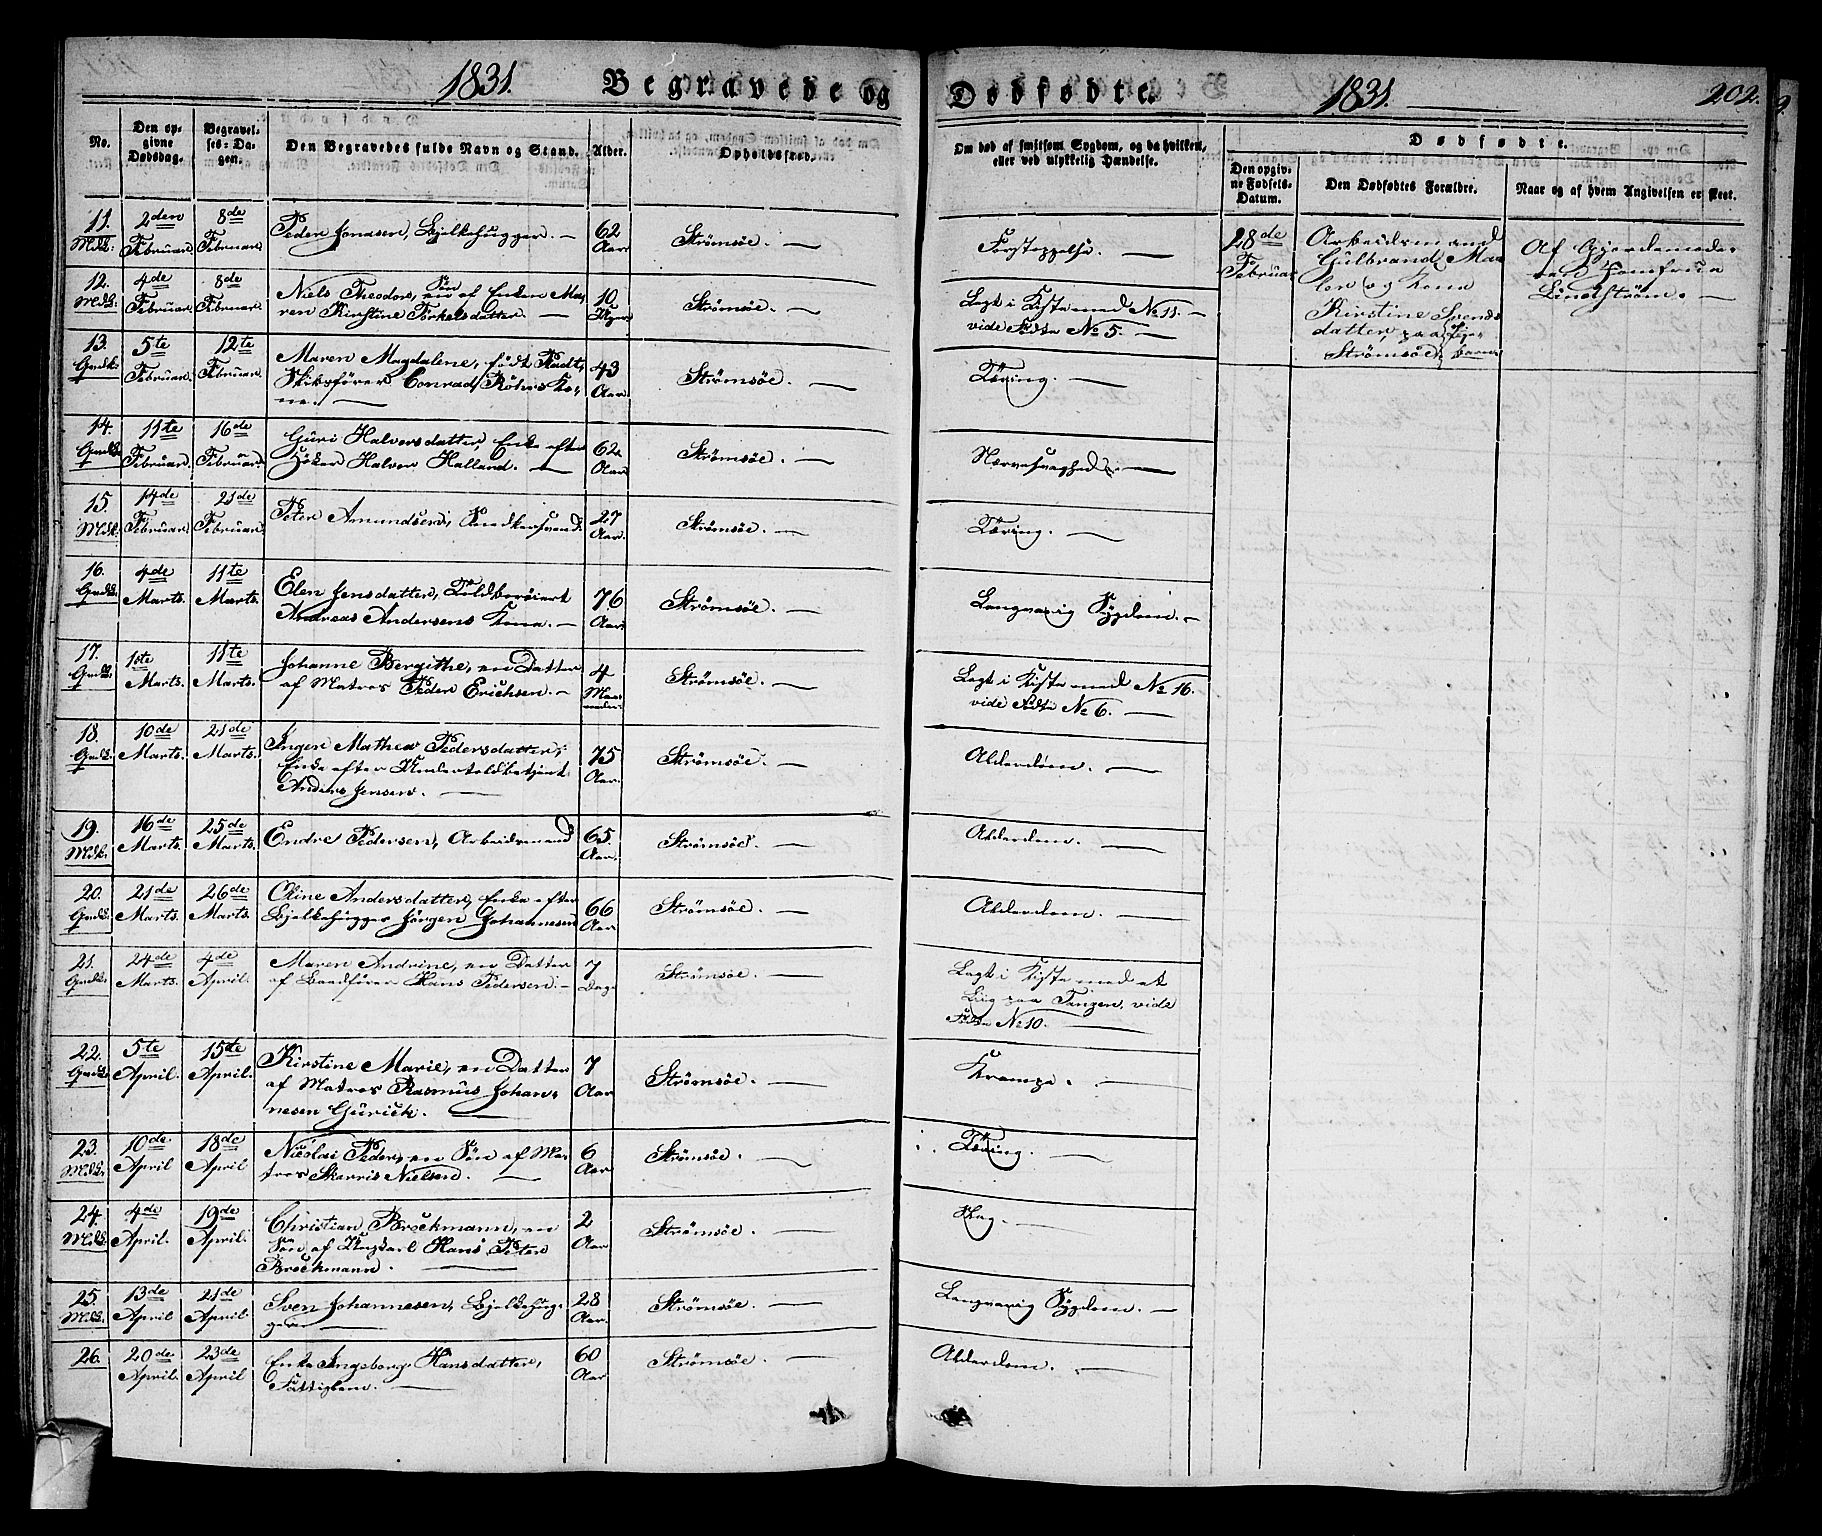 1831. Begravede og Dødfødte. 1831. 202.
No. Den opgivne Dødsdag. Begravelses-Dagen. Den Begravedes fulde Navn og Stand. Alder. Opholdssted. Om død af smitsom Sygdom, og da hvilken, eller ved ulykkelig Hændelse. Dødfødte.
Den opgivne Fødsels-Datum. Den Dødfødtes Forældre. Naar og af hvem Angivelsen er skeet.
11. Mdk: 2den Februar. 8de Februar. Peder Jonassen, Bjelkehugger. — 62 Aar. Strømsøe. — Forstoppelse. —
28de Februar. Arbeidsmand Gulbrand og Kone Kirstine Svendsdatter, paa Strømsøe,
Af Gjordemoder Jomfrue Lindstrøm. —
12. Mdk: 4de Februar. 8de Februar. Niels Theodor, en Søn af Enken Maren Kirstine Torkelsdatter. — 10 Uger. Strømsøe. — Lagt i Kiste med No 11. — vide Fødte No 5. —
13. Qvdk: 5te Februar. 12te Februar. Maren Magdalene, født Radt, Skibsfører Conrad Røhrs Kone. — 43 Aar. Strømsøe. — Tæring. —
14. Qvdk: 11te Februar. 16de Februar. Guri Halvorsdatter, Enke efter Høker Halvor Halland. — 62 Aar. Strømsøe. — Nervesvaghed. —
15. Mdk: 14de Februar. 21de Februar. Peter Amundsen, Snedkersvend. 27 Aar. Strømsøe. — Tæring. —
16. Qvdk: 4de Marts. 11te Marts. Elen Jensdatter, Toldberoient Andreas Andersens Kone. — 76 Aar. Strømsøe. — Langvarig Sygdom. —
17. Qvdk: 1ste Marts. 11te Marts. Johanne Bergithe, en Datter af Matros Peder Erichsen. — 4 Maaneder. Strømsøe. — Lagt i Kiste med No 16. vide Fødte No 6. —
18. Qvdk: 10de Marts. 21de Marts. Inger Mathea Pedersdatter, Enke efter Undertoldbetjent Anders Jensen. — 75 Aar. Strømsøe. — Alderdom. —
19. Mdk: 16de Marts. 25de Marts. Endre Pedersen, Arbeidsmand 65 Aar. Strømsøe. — Alderdom. —
20. Qvdk: 21de Marts. 26de Marts. Oline Andersdatter, Enke efter Bjelkehugger Jørgen Johannesen 66 Aar. Strømsøe. — Alderdom. —
21. Qvdk: 24de Marts. 4de April. Maren Andrine, en Datter af Baadfører Hans Pedersen. — 7 Dage Strømsøe. — Lagt i Kiste med et Liig paa Tangen, vide Fødte No 10. —
22. Qvdk: 5te April. 15de April. Kirstine Marie, en Datter af Matros Rasmus Johannesen Gurich. — 7 Aar Strømsøe. — Krampe. —
23. Mdk: 10de April 18de April Nicolai Peder, en Søn af Matros Skarris Nielsen. — 6 Aar Strømsøe. — Tæring. —
24. Mdk: 4de April. 19de April. Christian Brockmann, en Søn af Hans Peter Brockmann. — 2 Aar Strømsøe. — Slag. —
25. Mdk: 13de April 21de April Sven Johannesen, Bjelkehugger — 28 Aar Strømsøe. — Langvarig Sygdom. —
26. 20de April. 23de April Enke Ingeborg Hansdatter, Fattiglem. — 60 Aar Strømsøe. — Alderdom. —